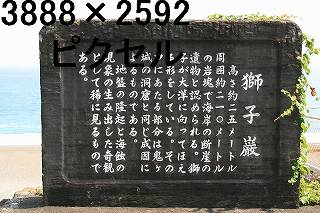 3888×2592
ピクセル
獅子巖
高さ約二五メートル
周囲約二一〇メートル
の岩塊で海岸の断崖の
遺物と認められる。獅
子が大洋に向ってほえ
る形をしている。その
口にあたる部分は鬼ヶ
城の洞窟と同じ成因に
よるものである。
地盤の隆起と海蝕の
現象の生み出した奇観
として稀に見るもので
ある。